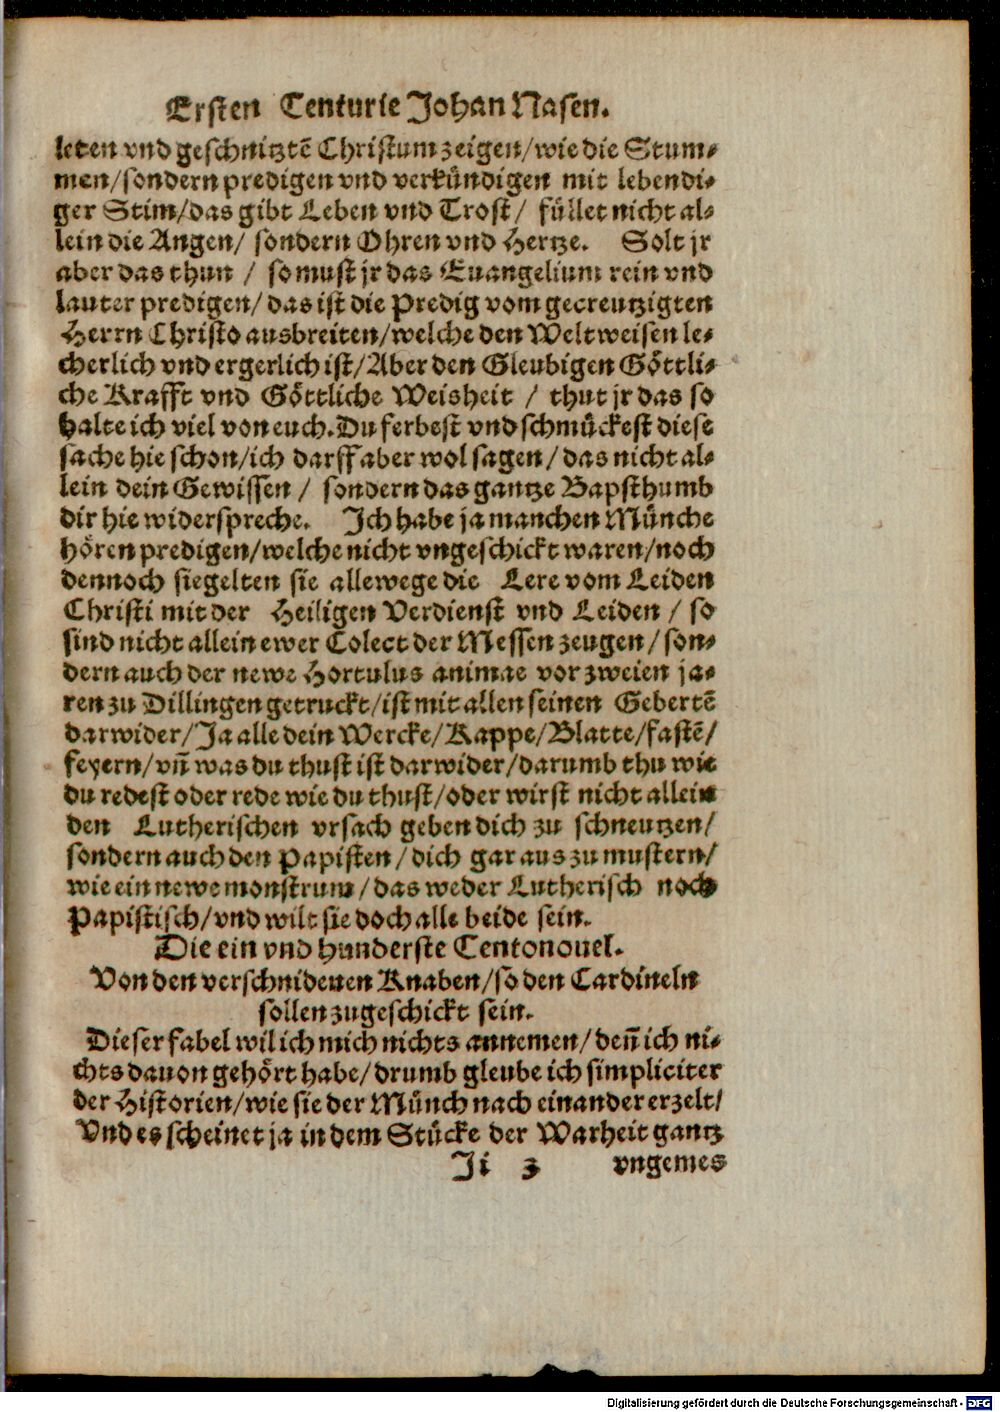 Ersten Centurie Johan Nasen.
leten vnd geschnitztē Christum zeigen/wie die Stum-
men/sondern predigen vnd verkündigen mit lebendi-
ger Stim/das gibt Leben vnd Trost/ füllet nicht al-
lein die Augen/ sondern Ohren vnd Hertze. Solt jr
aber das thun / so must jr das Euangelium rein vnd
lauter predigen/ das ist die Predig vom gecreutzigten
Herrn Christo ausbreiten/welche den Weltweisen le-
cherlich vnd ergerlich ist/Aber den Gleubigen Göttli-
che Krafft vnd Göttliche Weisheit / thut jr das so
halte ich viel von euch. Du ferbest vnd schmückest diese
sache hie schon/ich darff aber wol sagen/das nicht al-
lein dein Gewissen / sondern das gantze Bapsthumb
dir hie widerspreche. Ich habe ja manchen Münche
hören predigen/welche nicht vngeschickt waren/noch
dennoch siegelten sie allewege die Lere vom Leiden
Christi mit der Heiligen Verdienst vnd Leiden / so
sind nicht allein ewer Colect der Messen zeugen/son-
dern auch der newe Hortulus animae vor zweien ja-
ren zu Dillingen getruckt/ist mit allen seinen Gebertē
darwider/Ja alle dein Wercke/Kappe/Blatte/fastē/
feyern/vn̄ was du thust ist darwider/darumb thu wie
du redest oder rede wie du thust/oder wirst nicht allein
den Lutherischen vrsach geben dich zu schneutzen/
sondern auch den Papisten/dich gar aus zu mustern/
wie ein newe monstrum/das weder Lutherisch noch
Papistisch/vnd wilt sie doch alle beide sein.
Die ein vnd hunderste Centonouel.
Von den verschnidenen Knaben/so den Cardineln
sollen zugeschickt sein.
Dieser fabel wil ich mich nichts annemen/den̄ ich ni-
chts dauon gehört habe/drumb gleube ich simpliciter
der Historien/wie sie der Münch nach einander erzelt/
Vnd es scheinet ja in dem Stücke der Warheit gantz
Ii 3 vngemes
Digitalisierung gefördert durch die Deutsche Forschungsgemeinschaft - DFG